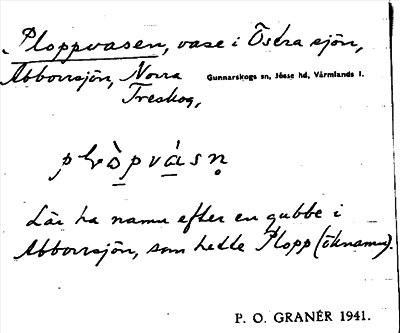 Ploppvasen, vase i Östra sjön,
Abborrsjön, Norra Gunnarskogs sn, Jösse hd, Värmlands l.
Treskog,
plòpvàsn̥
Lär ha namn efter en gubbe i
Abborrsjön, som hette Plopp (öknamn).
P. O. GRANÉR 1941.